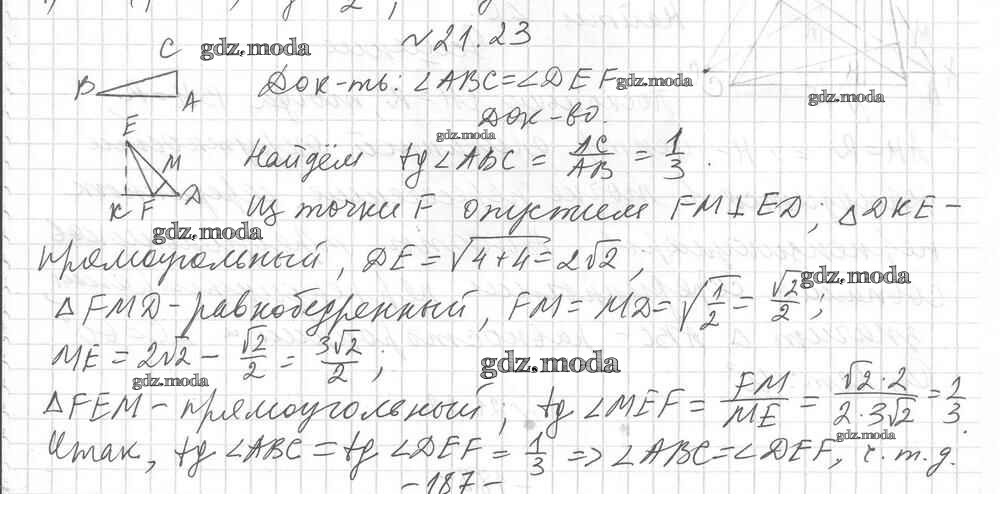 №21.23
C
B
A
gdz.moda
Док-ть: ∠ABC=∠DEF
gdz.moda
gdz.moda
Док-во.
gdz.moda
E
M
K F D
Найдём tg∠ABC = AC/AB = 1/3.
Из точки F опустим FM⊥ED; △DKE-
gdz.moda
прямоугольный, DE = √4+4 = 2√2,
gdz.moda
△FMD-равнобедренный, FM = MD = √1/2 = √2/2;
ME = 2√2 - √2/2 = 3√2/2;
gdz.moda
gdz.moda
△FEM-прямоугольный; tg∠MEF = FM/ME = √2·2/2·3√2 = 1/3.
gdz.moda
Итак, tg∠ABC = tg∠DEF = 1/3 => ∠ABC=∠DEF, ч.т.д.
-187-